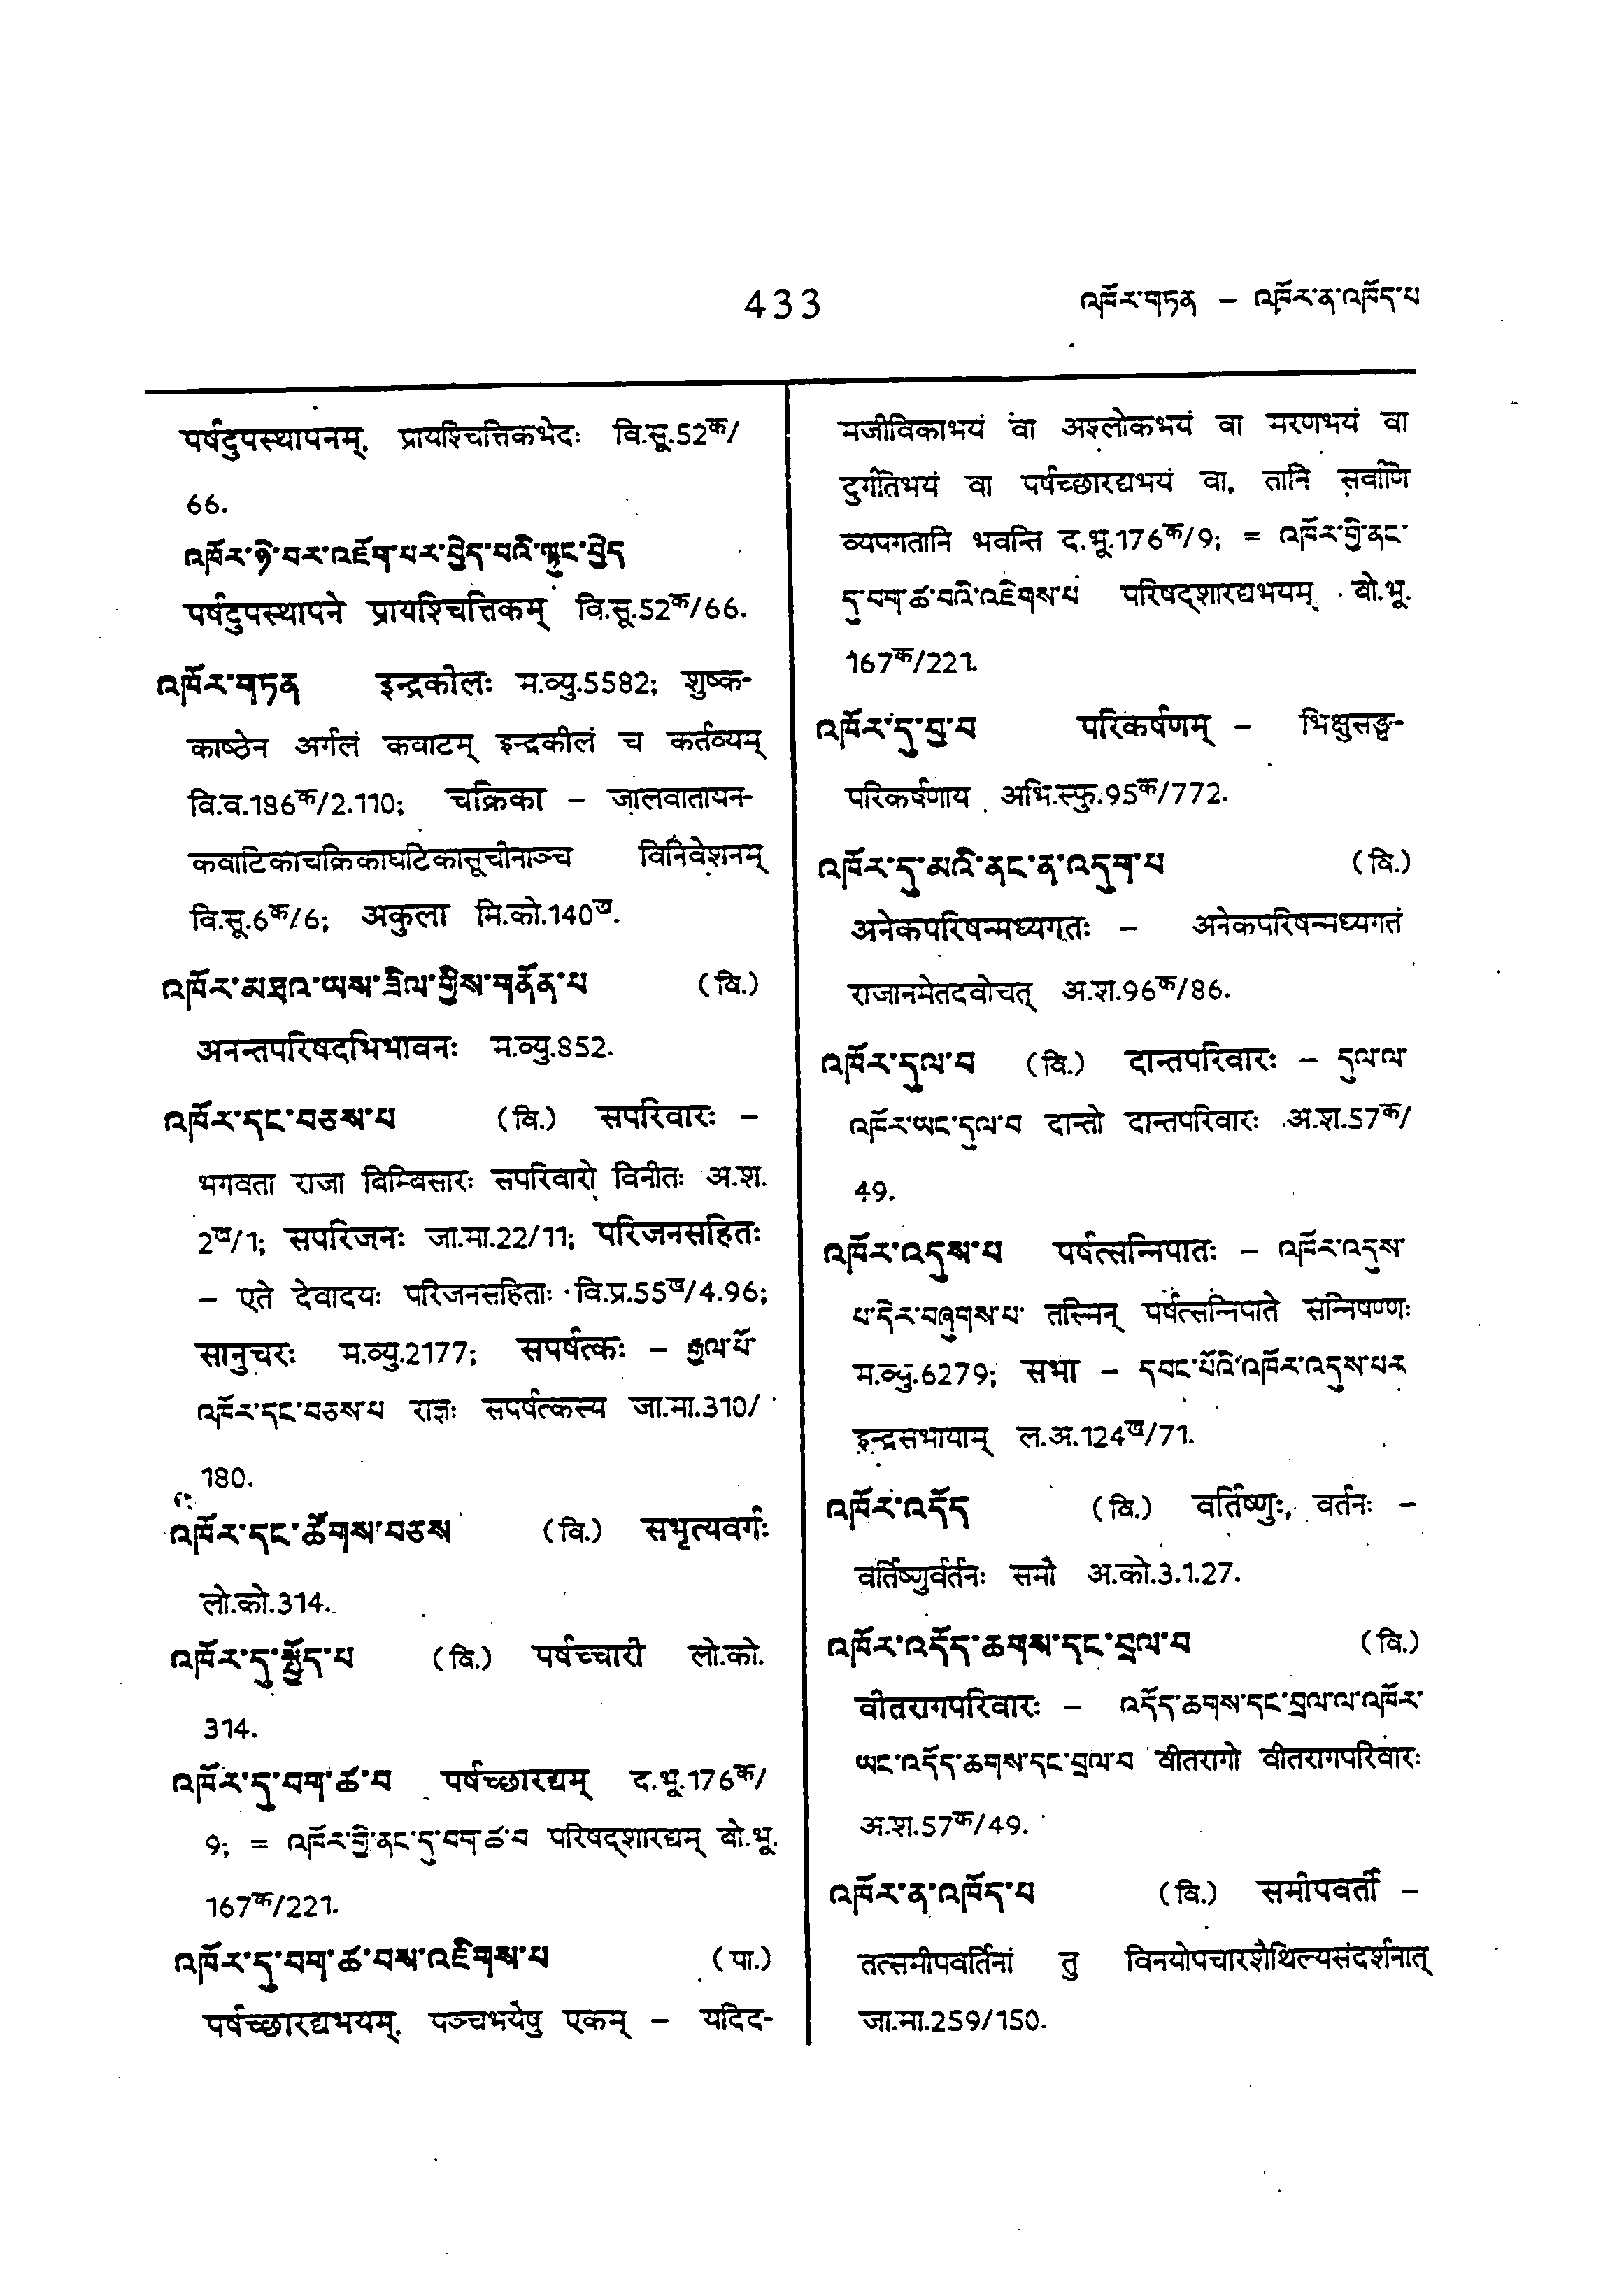 433
འཁོར་གཏན – འཁོར་ན་འཁོད་པ
पर्षदुपस्थापनम्, प्रायश्चित्तिकभेदः वि.सू.52क/
66.
འཁོར་ཉེ་བར་འཇོག་པར་བྱེད་པའི་ལྟུང་བྱེད
पर्षदुपस्थापने प्रायश्चित्तिकम् वि.सू.52क/66.
འཁོར་གཏན इन्द्रकीलः म.व्यु.5582; शुष्क-
काष्ठेन अर्गलं कवाटम् इन्द्रकीलं च कर्तव्यम्
वि.व.186क/2.110; चक्रिका – जालवातायन-
कवाटिकाचक्रिकाघटिकासूचीनाञ्च विनिवेशनम्
वि.सू.6क/6; अकुला मि.को.140ख.
འཁོར་མཐའ་ཡས་ཟིལ་གྱིས་གནོན་པ (वि.)
अनन्तपरिषदभिभावनः म.व्यु.852.
འཁོར་དང་བཅས་པ (वि.) सपरिवारः –
भगवता राजा विम्बिसारः सपरिवारो विनीतः अ.श.
2ख/1; सपरिजनः जा.मा.22/11; परिजनसहितः
– एते देवादयः परिजनसहिताः वि.प्र.55ख/4.96;
सानुचरः म.व्यु.2177; सपर्षत्कः – རྒྱལ་པོ་
འཁོར་དང་བཅས་པ राज्ञः सपर्षत्कस्य जा.मा.310/
180.
འཁོར་དང་ཚོགས་བཅས (वि.) सभृत्यवर्गः
लो.को.314.
འཁོར་དུ་སྤྱོད་པ (वि.) पर्षच्चारी लो.को.
314.
འཁོར་དུ་བག་ཚ་བ पर्षच्छारद्यम् द.भू.176क/
9; = འཁོར་གྱི་ནང་དུ་བག་ཚ་བ परिषद्शारद्यम् बो.भू.
167क/221.
འཁོར་དུ་བག་ཚ་བས་འཇིགས་པ (पा.)
पर्षच्छारद्यभयम्, पञ्चभयेषु एकम् – यदिद-
मजीविकाभयं वा अश्लोकभयं वा मरणभयं वा
दुर्गतिभयं वा पर्षच्छारद्यभयं वा, तानि सर्वाणि
व्यपगतानि भवन्ति द.भू.176क/9; = འཁོར་གྱི་ནང་
དུ་བག་ཚ་བའི་འཇིགས་པ परिषद्शारद्यभयम् बो.भू.
167क/221.
འཁོར་དུ་བྱ་བ परिकर्षणम् – भिक्षुसङ्घ-
परिकर्षणाय अभि.स्फु.95क/772.
འཁོར་དུ་མའི་ནང་ན་འདུག་པ (वि.)
अनेकपरिषन्मध्यगतः – अनेकपरिषन्मध्यगतं
राजानमेतदवोचत् अ.श.96क/86.
འཁོར་དུལ་བ (वि.) दान्तपरिवारः – དུལ་ལ་
འཁོར་ཡང་དུལ་བ दान्तो दान्तपरिवारः अ.श.57क/
49.
འཁོར་འདུས་པ पर्षत्सन्निपातः – འཁོར་འདུས་
པ་དེར་བཞུགས་པ་ तस्मिन् पर्षत्सन्निपाते सन्निषण्णः
म.व्यु.6279; सभा – དབང་པོའི་འཁོར་འདུས་པར
इन्द्रसभायाम् ल.अ.124ख/71.
འཁོར་འདོད (वि.) वर्तिष्णुः, वर्तनः –
वर्तिष्णुर्वर्तनः समौ अ.को.3.1.27.
འཁོར་འདོད་ཆགས་དང་བྲལ་བ (वि.)
वीतरागपरिवारः – འདོད་ཆགས་དང་བྲལ་ལ་འཁོར་
ཡང་འདོད་ཆགས་དང་བྲལ་བ वीतरागो वीतरागपरिवारः
अ.श.57क/49.
འཁོར་ན་འཁོད་པ (वि.) समीपवर्ती –
तत्समीपवर्तिनां तु विनयोपचारशैथिल्यसंदर्शनात्
जा.मा.259/150.